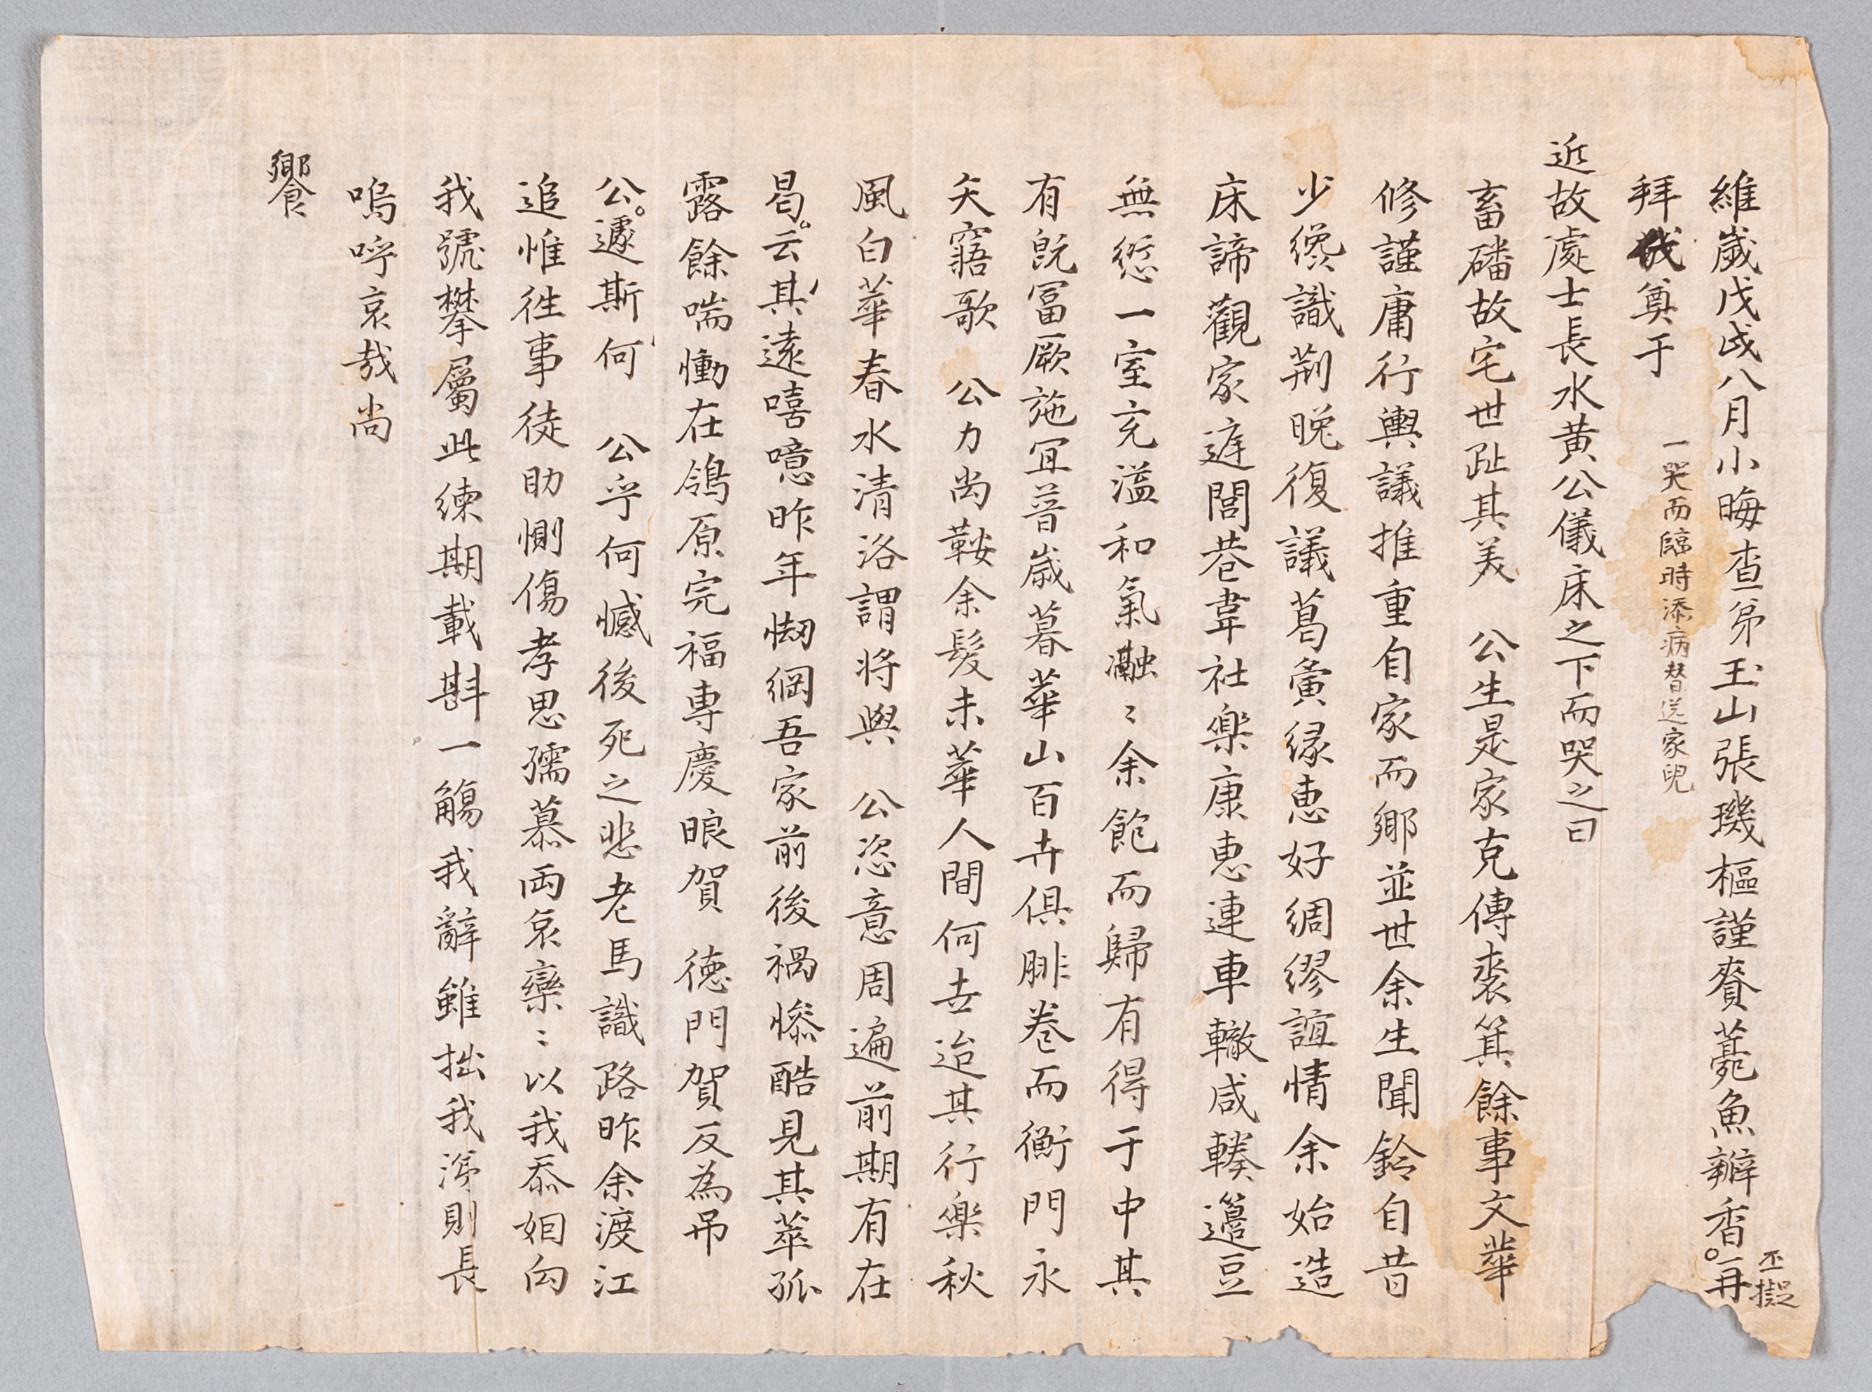 維歲戊戌八月小晦查弟玉山張璣樞謹賚薧魚瓣香再
丕擬
拜 奠于
一哭而臨時添病替送家兒
近故處士長水黃公儀床之下而哭之曰
畜磻故宅世趾其美 公生是家克傳裘箕餘事文華
修謹庸行輿議推重自家而鄉並世余生聞鈴自昔
少纔識荊晚復議葛夤緣惠好綢繆誼情余始造
床諦觀家庭閭巷韋社樂康惠連車轍咸輳籩豆
無愆一室充溢和氣瀜〻余飽而歸有得于中其
有旣冨厥施宜普歲暮華山百卉俱腓卷而衡門永
矢寤歌 公力尚鞍余髮未華人間何去迨其行樂秋
風白華春水清洛謂將與 公恣意周遍前期有在
曷云其遠嘻噫昨年㤼綱吾家前後禍慘酷見其萃孤
露餘喘慟在鴒原完福專慶眼賀 德門賀反為吊
公遽斯何 公乎何憾後死之悲老馬識路昨余渡江
追惟徃事徒助惻傷孝思孺慕兩哀欒〻以我忝姻向
我號攀屬此練期載斟一觴我辭雖拙我淂則長
嗚呼哀哉尚
饗